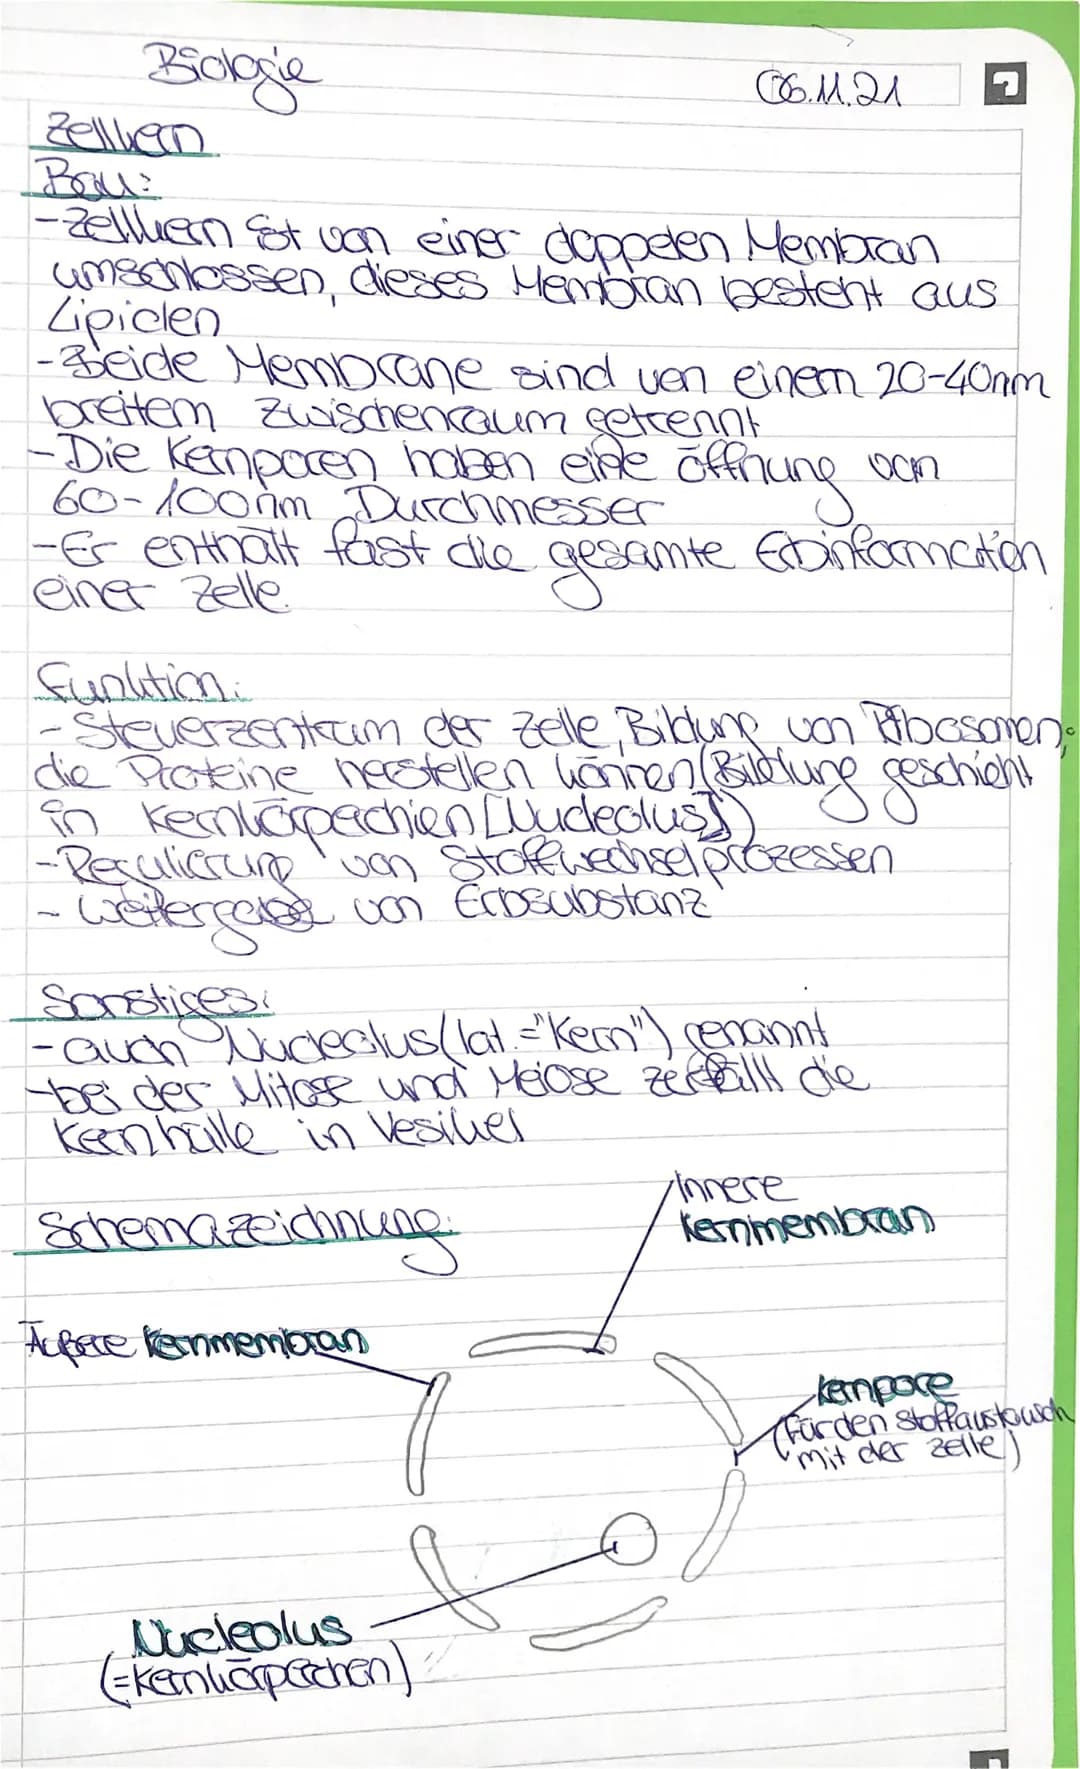 Biologie
06.11.21
Zellkern
Bau:
-Zellkern ist von einer doppelten Membran
umschlossen, dieses Membran besteht aus
Lipiden
-Beide Membrane sind von einem 20-40nm
breitem Zwischenraum getrennt
-Die Kernporen haben eine öffnung von
60-100nm Durchmesser
-Er enthält fast die gesamte Erbinformation
einer Zelle.
Funktion:
- Steuerzentrum der Zelle, Bildung von Ribosomen,
die Proteine herstellen können (Bildung geschieht
in Kernkörperchen [Nucleolus])
-Regulierung von Stoffwechselprozessen
- Weitergabe von Erbsubstanz
Sonstiges:
-auch Nucleolus (lat.="Kern") genannt
-bei der Mitose und Meiose zerfällt die
Kernhülle in Vesikel
Schemazeichnung:
Innere
Kernmembran
Äußere Kernmembran
Kernpore
(für den Stoffaustausch
mit der Zelle)
Nucleolus
(=Kernkörperchen)